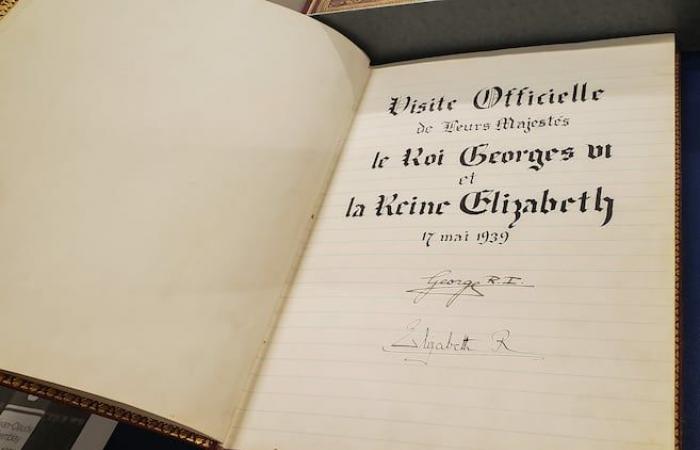 Visite Officielle
de Leurs Majestés
le Roi Georges VI
et
la Reine Elizabeth
17 mai 1939
George R.I.
Elizabeth R